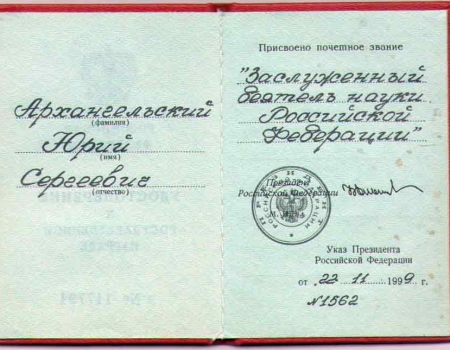 Архангельский
(фамилия)
Юрий
(имя)
Сергеевич
(отчество)
Присвоено почетное звание
"Заслуженный
деятель науки
Российской
Федерации"
Президент
Российской Федерации
Указ Президента
Российской Федерации
от 22 11 1999 г.
№1562